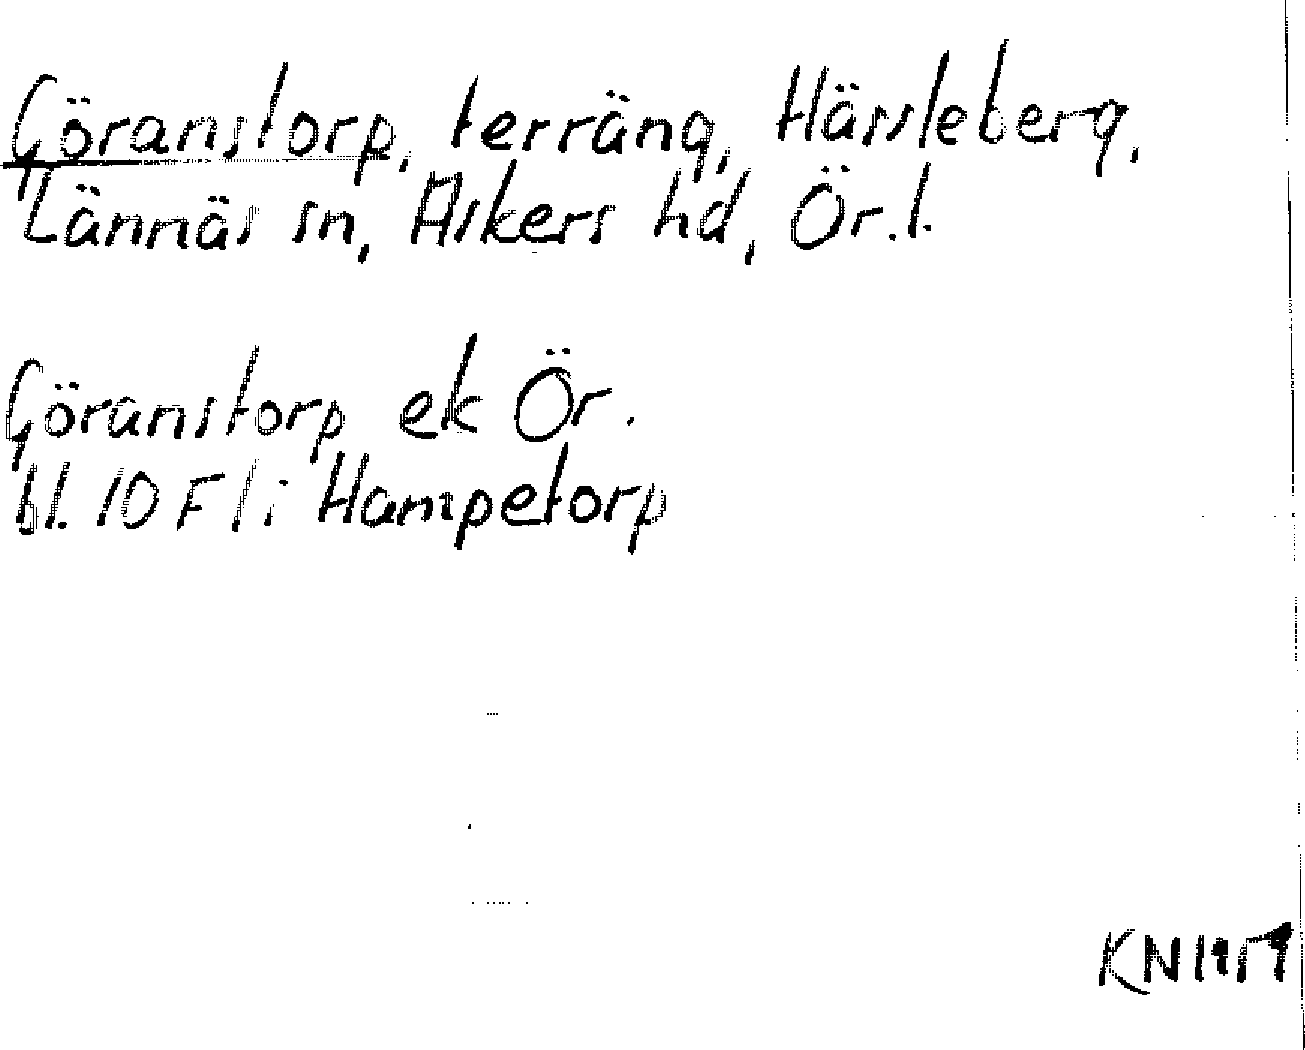 Göranstorp, terräng, Hässleberg,
Lännäs sn, Askers hd, Ör. l.
Göranstorp ek Ör.
bl. 10 F 1 i Hampetorp
KN 1959